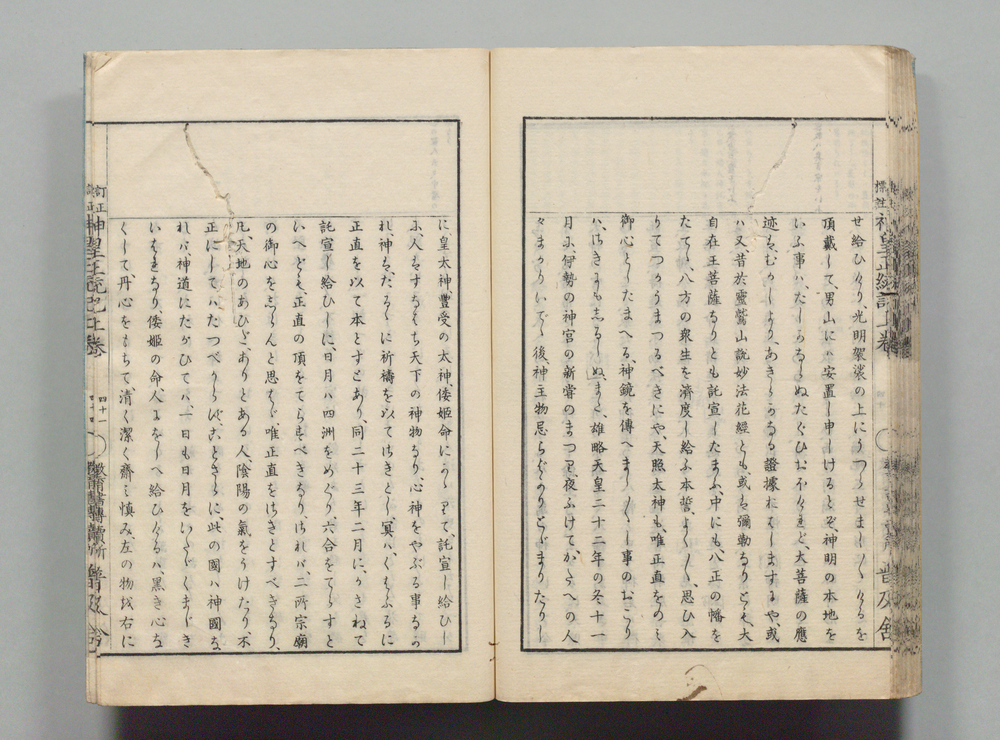 せ給ひけり、光明袈裟の上にうつらせましゝけるを
頂戴して、男山にハ安置し申しけるとぞ、神明の本地を
いふ事ハ、たしかならぬたぐひおほけれど、大菩薩の應
迹ハ、むかしより、あきらかなる證據おはしますにや、或
ハ又、昔於靈鷲山説妙法花經とも、或ハ彌勒なりとも、大
自在王菩薩なりとも託宣したまふ、中にも八正の幡を
たてゝ、八方の衆生を濟度し給ふ本誓をよくゝ思ひ入
りてつかうまつるべきにや、天照太神も、唯正直をのミ
御心としたまへる、神鏡を傳へましゝし事のおこり
ハ、はじめにもしるしぬ、また、雄略天皇二十二年の冬十一
月に、伊勢の神宮の新嘗のまつり、夜ふけてかたへの人
々まかりいでゝ後、神主物忌らばかりとゞまりたりし
に、皇太神豐受の太神、倭姫命にかゝりて、託宣し給ひし
に、人ハすなはち天下の神物なり、心神をやぶる事なか
れ、神ハたるゝに祈禱を以てはじめとし、冥ハくはふるに
正直を以て本とすとあり、同二十三年二月に、かさねて
託宣し給ひしに、日月ハ四洲をめぐり、六合をてらすと
いへども、正直の頂をてらすべきなり、されバ、二所宗廟
の御心をしらんと思はゞ、唯正直をはじめとすべきなり、
凡天地のあひだ、ありとある人、陰陽の氣をうけたり、不
正にしてハたつべからず、ことさらに、此の國ハ神國な
れバ、神道にたがひてハ、一日も日月をいたゞくまじき
いはれなり、倭姫の命、人にをしへ給ひけるハ、黑き心な
くして、丹心をもちて、清く潔く齋り慎み、左の物を右に
訂正神皇正統記上卷
四十一
普及舍